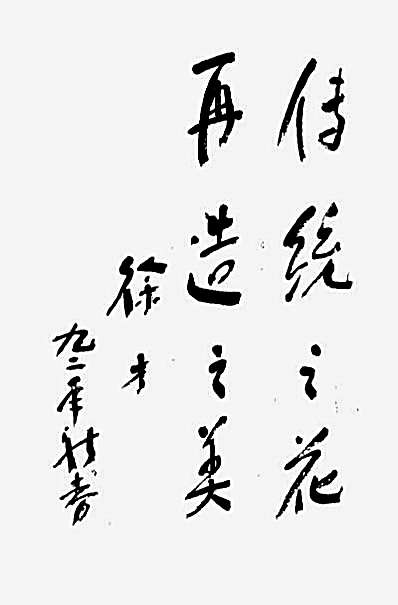 传统之花
再造之美
徐才
九二年秋书